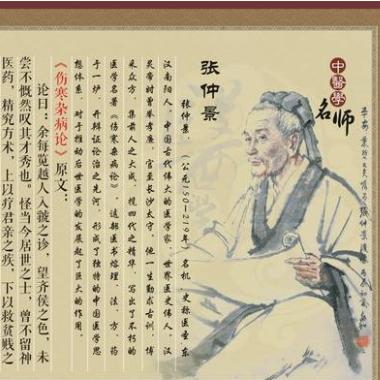 中醫學
名师
张仲景
张仲景，（公元150—219年）名机，史称医圣，东
汉南阳人，中国古代伟大的医学家，世界医史伟人，汉
灵帝时曾举孝廉，官至长沙太守，他一生勤求古训，博
采众方，集前人之大成，揽四代之精华，写出了不朽的
医学名著《伤寒杂病论》，这部医书熔理、法、方、药
于一炉，开辩证论治之先河，形成了独特的中国医学思
想体系，对于推动后世医学的发展起了巨大的作用。
《伤寒杂病论》原文：
论曰：余每览越人入虢之诊，望齐侯之色，未
尝不慨然叹其才秀也。怪当今居世之士，曾不留神
医药，精究方术，上以疗君亲之疾，下以救贫贱之